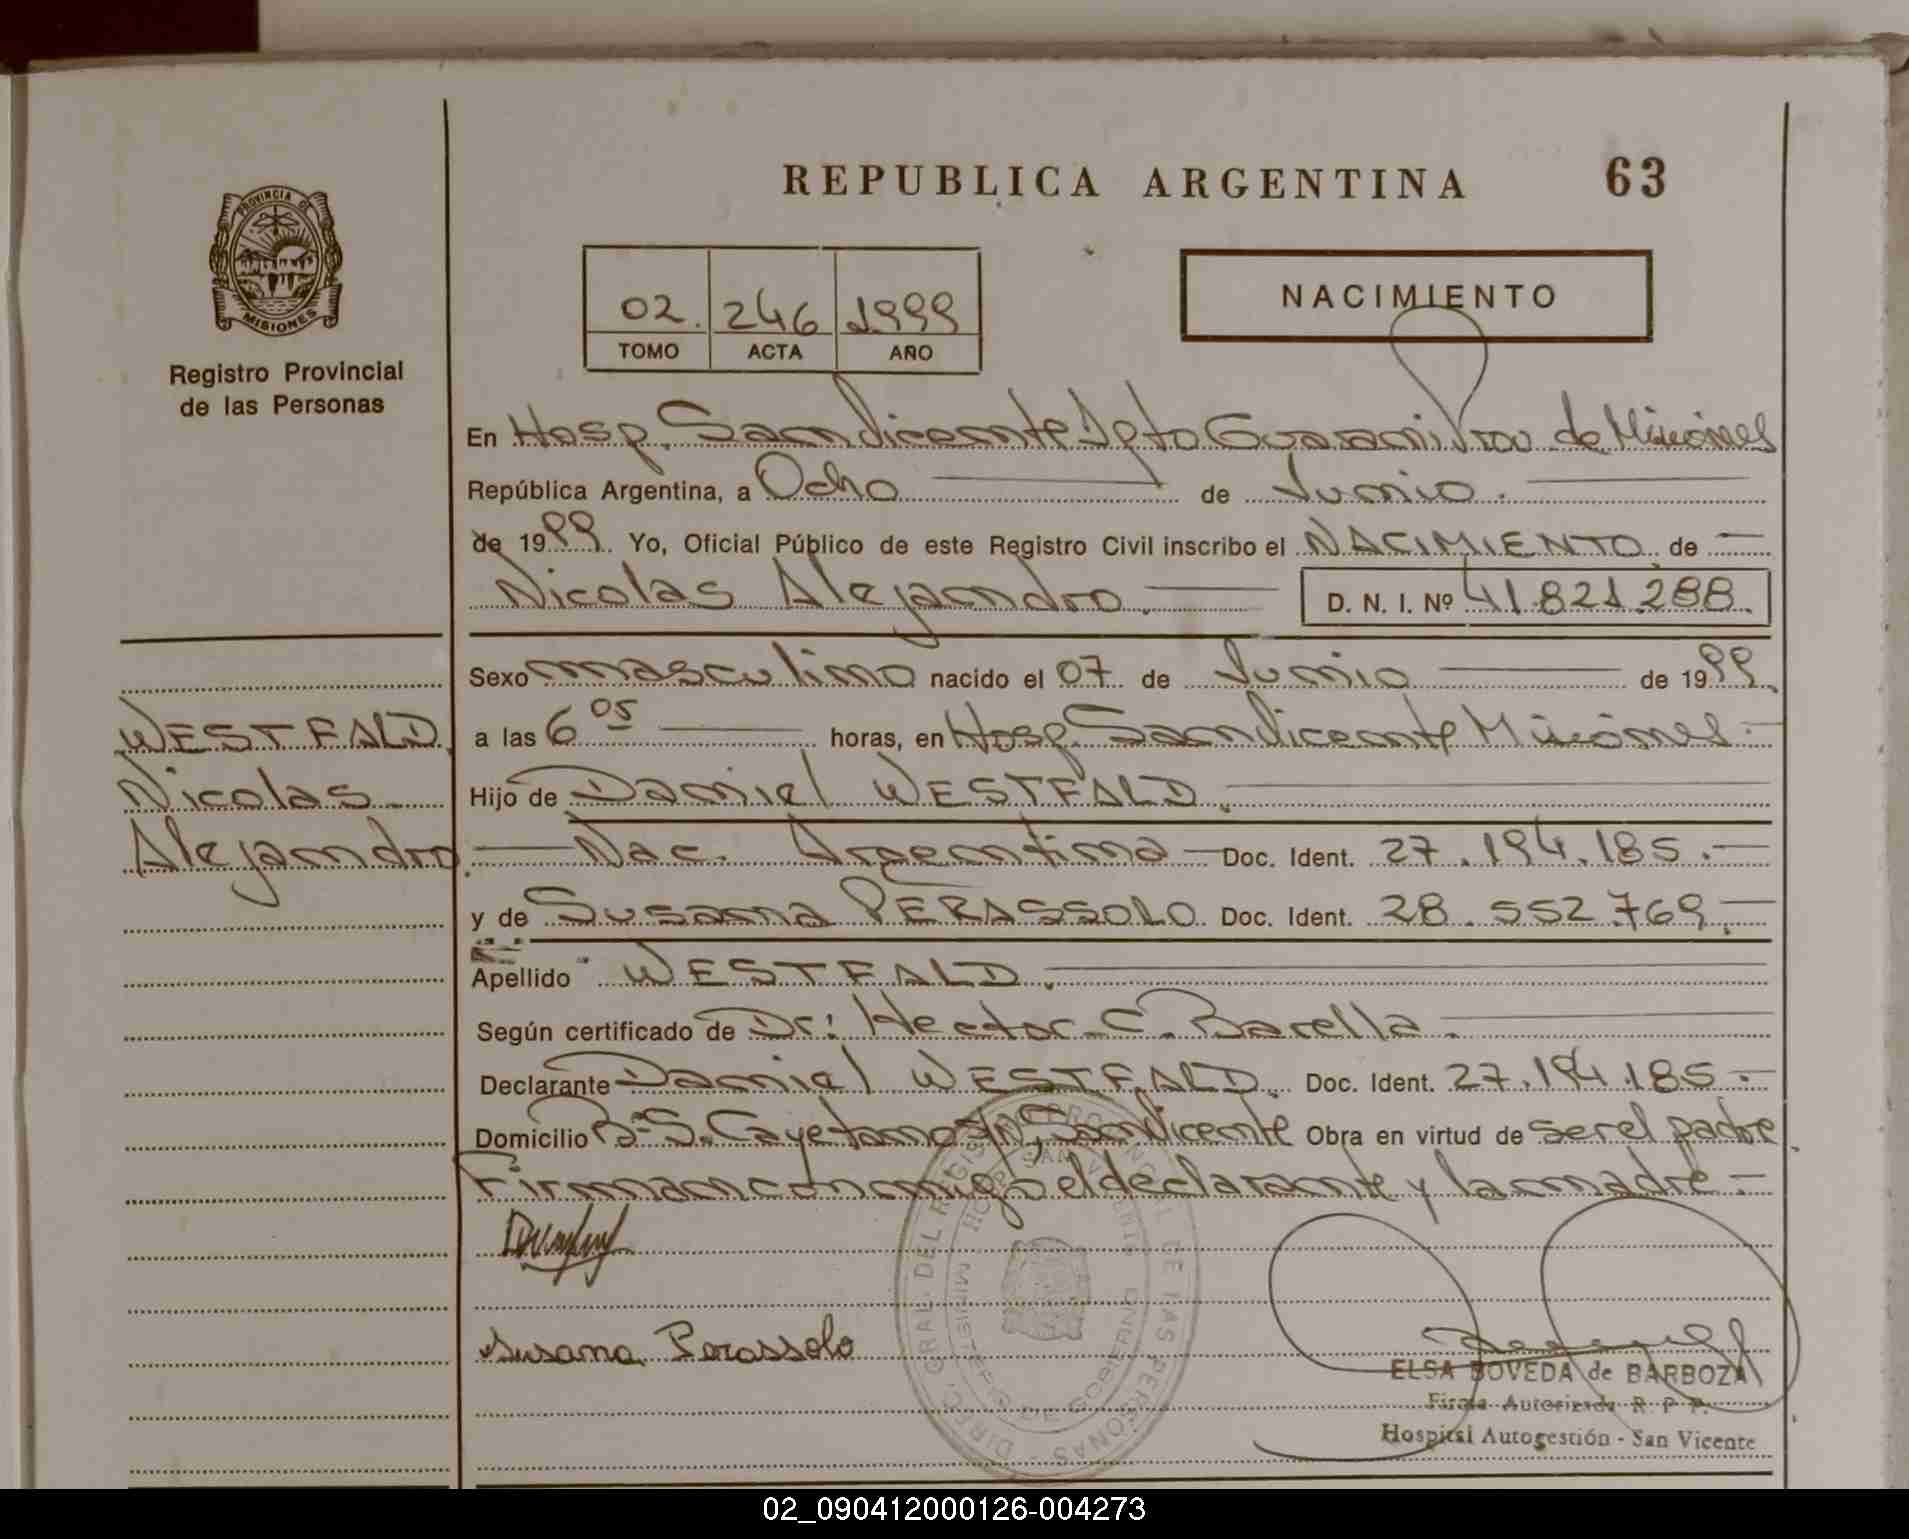 REPUBLICA ARGENTINA 63
PROVINCIA DE
MISIONES
Registro Provincial
de las Personas
02. 246 1999
TOMO ACTA AÑO
NACIMIENTO
En Hosp. San Vicente Dpto Guarani Prov de Misiones
República Argentina, a Ocho de Junio.
de 1999. Yo, Oficial Público de este Registro Civil inscribo el NACIMIENTO de
Nicolas Alejandro. D. N. I. Nº 41.821.288.
Sexo masculino nacido el 07 de Junio de 1999
a las 6 05 horas, en Hosp. San Vicente Misiones -
Hijo de Daniel WESTFALD.
Nac. Argentina Doc. Ident. 27.194.185.-
y de Susana PERASSOLO Doc. Ident. 28.552.769.-
Apellido WESTFALD.
Según certificado de Dr: Hector C. Barella.
Declarante Daniel WESTFALD. Doc. Ident. 27.194.185.-
Domicilio Bº S. Cayetano S/N, San Vicente Obra en virtud de ser el padre.
Firman conmigo el declarante y la madre.-
WESTFALD
Nicolas
Alejandro.
Susana Perassolo
DIREC. GRAL. DEL REGISTRO PROVINCIAL DE LAS PERSONAS
HOSP. SAN VICENTE
MINISTERIO DE GOBIERNO
ELSA BOVEDA de BARBOZA
Firma Autorizada R. P. P.
Hospital Autogestión - San Vicente
02_090412000126-004273